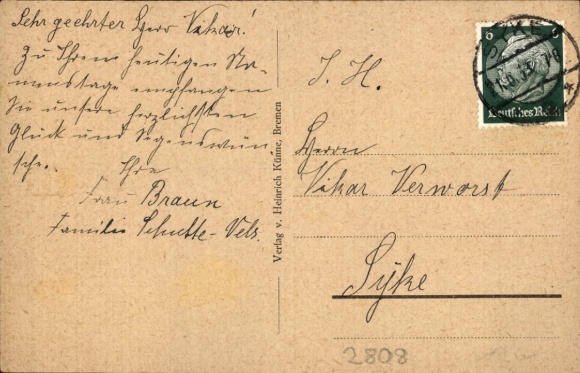 Sehr geehrter Herr Vikar!
Zu Ihrem heutigen Na-
menstage empfangen
Sie unsere herzlichsten
Glück und Segenswün-
sche. Ihre
Frau Braun
Familie Schutte-Vels.
Verlag v. Heinrich Künne, Bremen
6 6
Deutsches Reich
SYKE
S. H.
Herrn
Vikar Verworst
Syke
2808